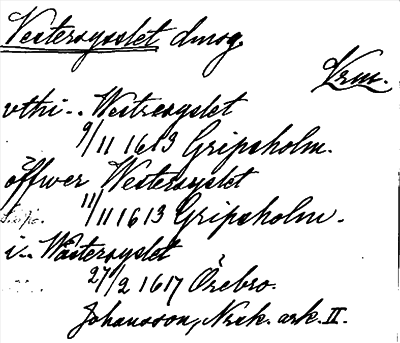 Vestersysslet dmsg.
Vrm.
vthi - . Westresyslet
9/11 1613 Gripsholm.
öffwer Westersyslet
11/11 1613 Gripsholm.
i - . Wästersyslet
27/2 1617 Örebro.
Johansson, Nrk. ark. II.